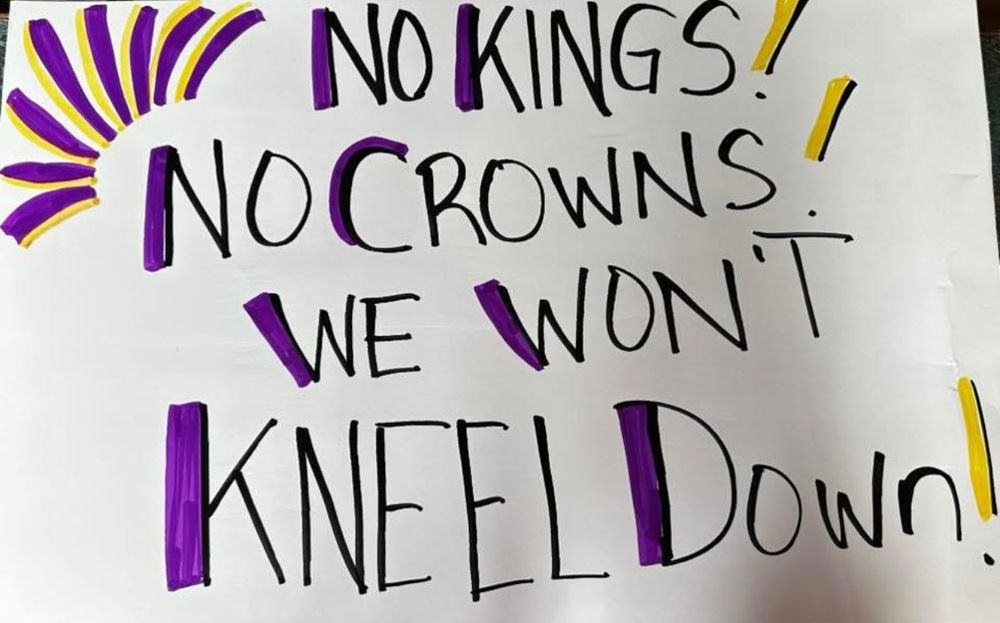 NO KINGS!
NO CROWNS!
WE WON'T
KNEEL DOwn!